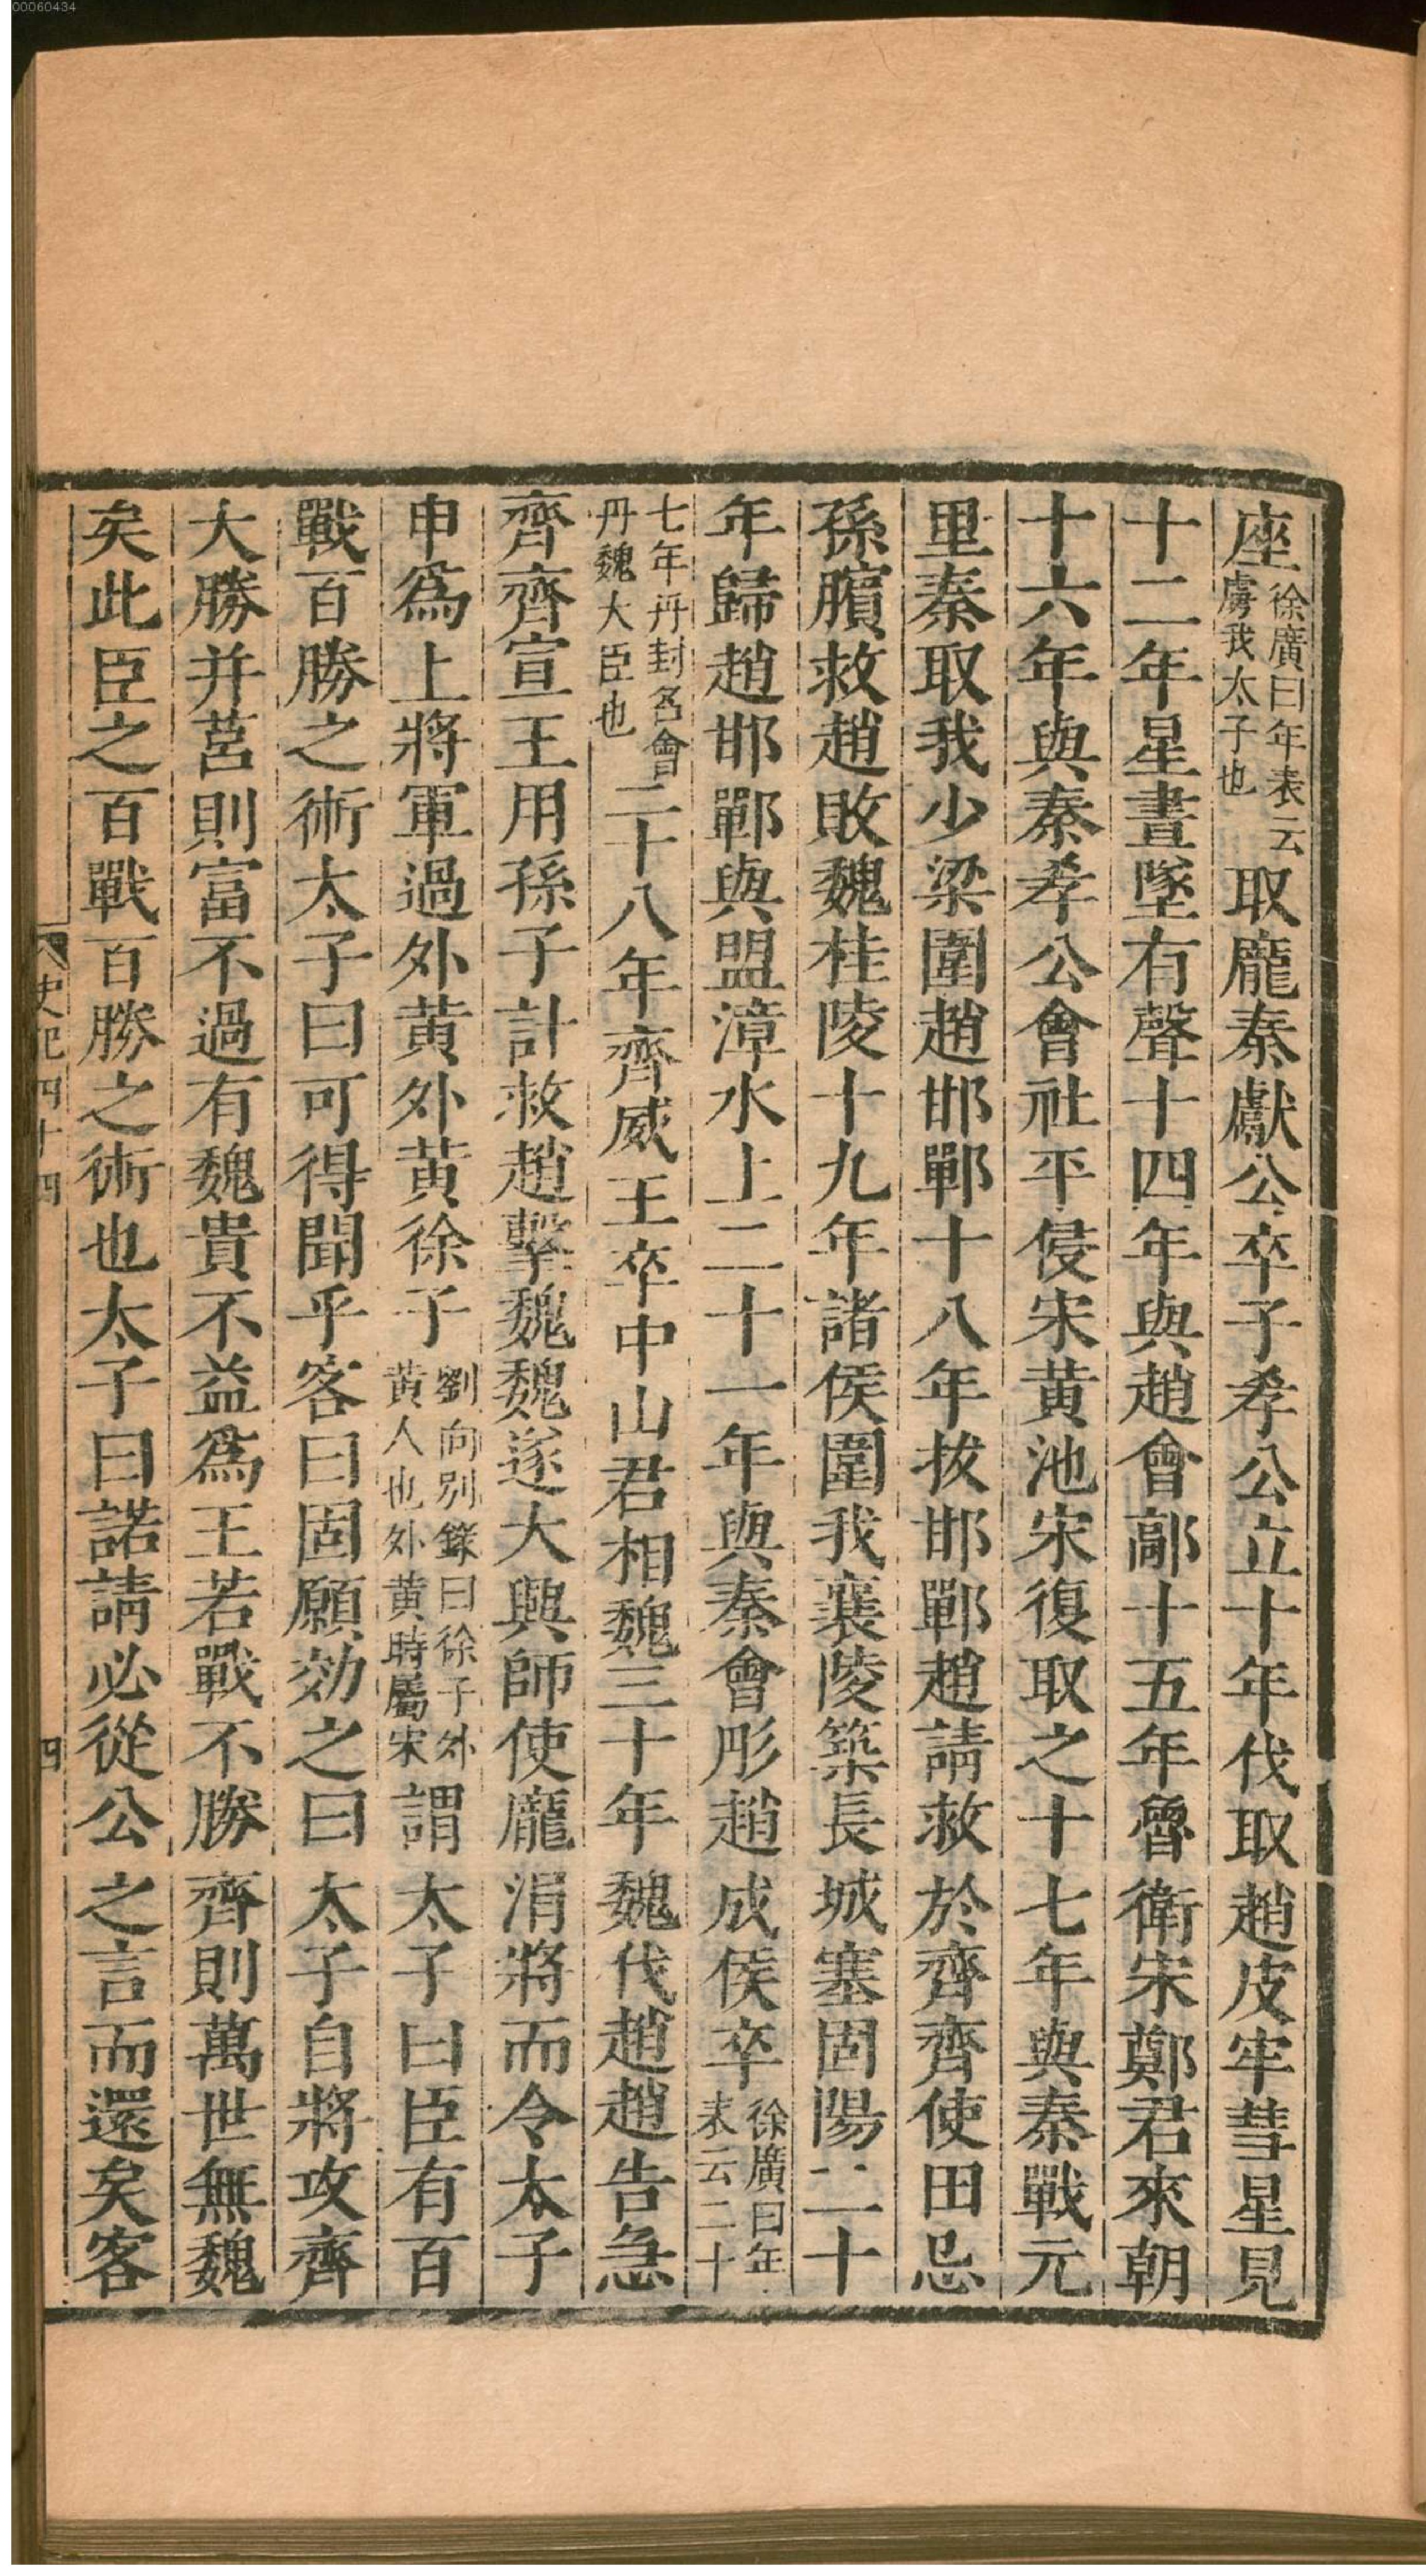 00060434
座徐廣曰年表云虜我太子也取龐秦獻公卒子孝公立十年伐取趙皮牢彗星見
十二年星晝墜有聲十四年與趙會鄗十五年魯衛宋鄭君來朝
十六年與秦孝公會社平侵宋黃池宋復取之十七年與秦戰元
里秦取我少梁圍趙邯鄲十八年拔邯鄲趙請救於齊齊使田忌
孫臏救趙敗魏桂陵十九年諸侯圍我襄陵築長城塞固陽二十
年歸趙邯鄲與盟漳水上二十一年與秦會彤趙成侯卒徐廣曰年表云二十
七年丹封名會丹魏大臣也二十八年齊威王卒中山君相魏三十年魏伐趙趙告急
齊齊宣王用孫子計救趙擊魏魏遂大興師使龐涓將而令太子
申爲上將軍過外黃外黃徐子劉向別錄曰徐子外黃人也外黃時屬宋謂太子曰臣有百
戰百勝之術太子曰可得聞乎客曰固願効之曰太子自將攻齊
大勝并莒則富不過有魏貴不益爲王若戰不勝齊則萬世無魏
矣此臣之百戰百勝之術也太子曰諾請必從公之言而還矣客
史記四十四 四